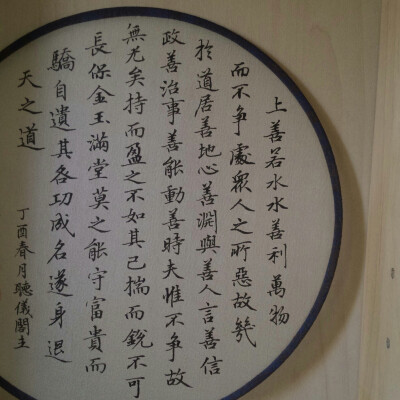 上善若水水善利萬物
而不爭處眾人之所惡故幾
於道居善地心善淵與善人言善信
政善治事善能動善時夫惟不爭故
無尤矣持而盈之不如其已揣而銳不可
長保金玉滿堂莫之能守富貴而
驕自遺其咎功成名遂身退
天之道
丁酉春月聽儀閣主